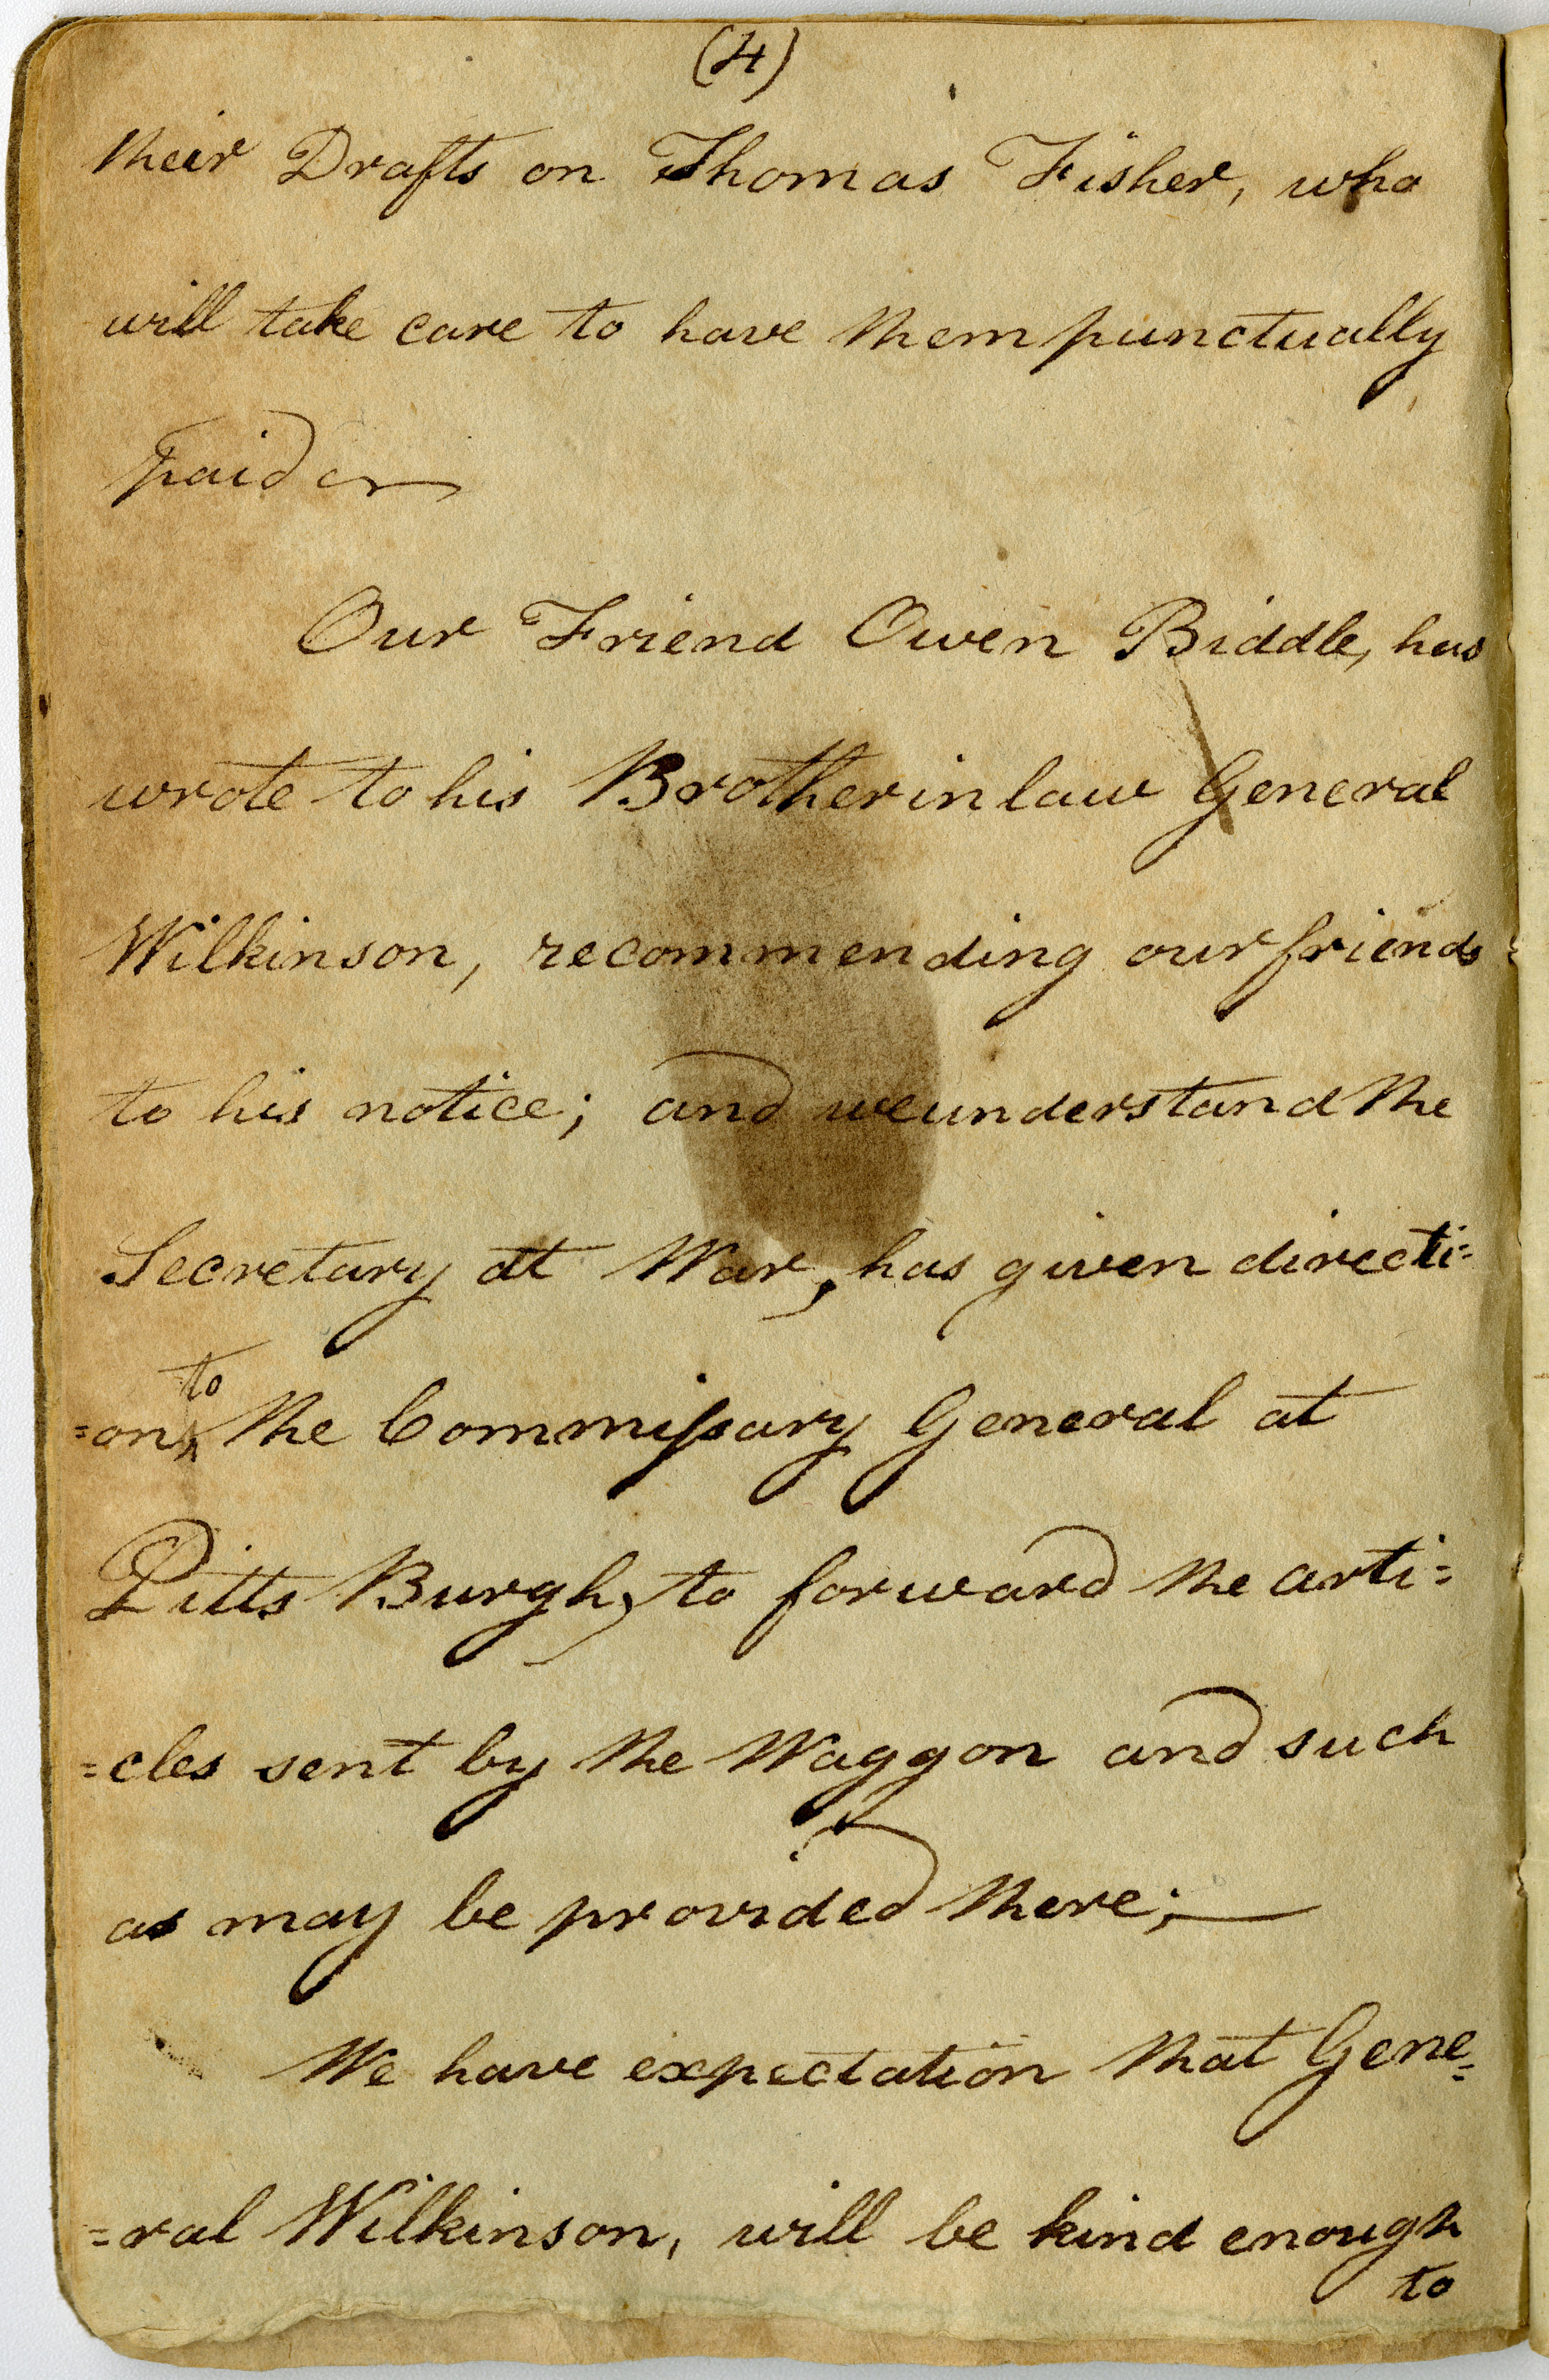 (4)
their Drafts on Thomas Fisher, who
will take care to have them punctually
paid
Our Friend Owen Biddle, has
wrote to his Brother in law General
Wilkinson, recommending our friends
to his notice; and we understand the
Secretary at War, has given directi=
=on to the Commissary General at
Pitts Burgh, to forward the arti=
=cles sent by the Waggon and such
as may be provided there;
We have expectation that Gene=
=ral Wilkinson, will be kind enough
to